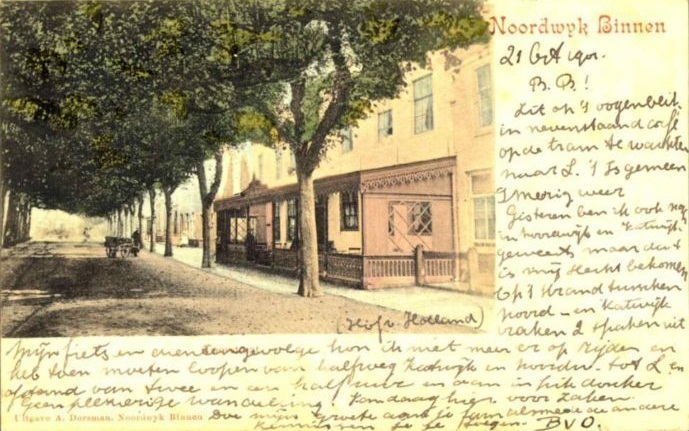 Noordwyk Binnen
21 Oct 1901.
B. B!
Zit op 't oogenblik
in nevenstaand café
op de tram te wachten
naar L. 't Is gemeen
smerig weer
Gisteren ben ik ook nog
in noordwijk en Katwijk
geweest, maar dat
is mij slecht bekomen
Op 't strand tusschen
noord- en Katwijk
braken 2 spaken uit
(Hof v Holland)
Mijn fiets en dientengevolge kon ik niet meer er op rijden en
heb toen moeten loopen van halfweg Katwijk en noordw. tot L. en
afstand van twee en een half uur en aan in pik donker
Geen plezierige wandeling! Vandaag hier voor zaken.
Uitgave A. Dorsman, Noordwyk Binnen
Doe mijn groete aan je fam alsmede de andere
kennissen
B v O.